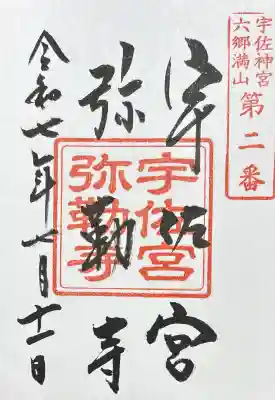 宇佐神宮
六郷満山
第二番
宇佐宮
弥勒寺
宇佐宮
弥勒寺
令和七年七月十一日